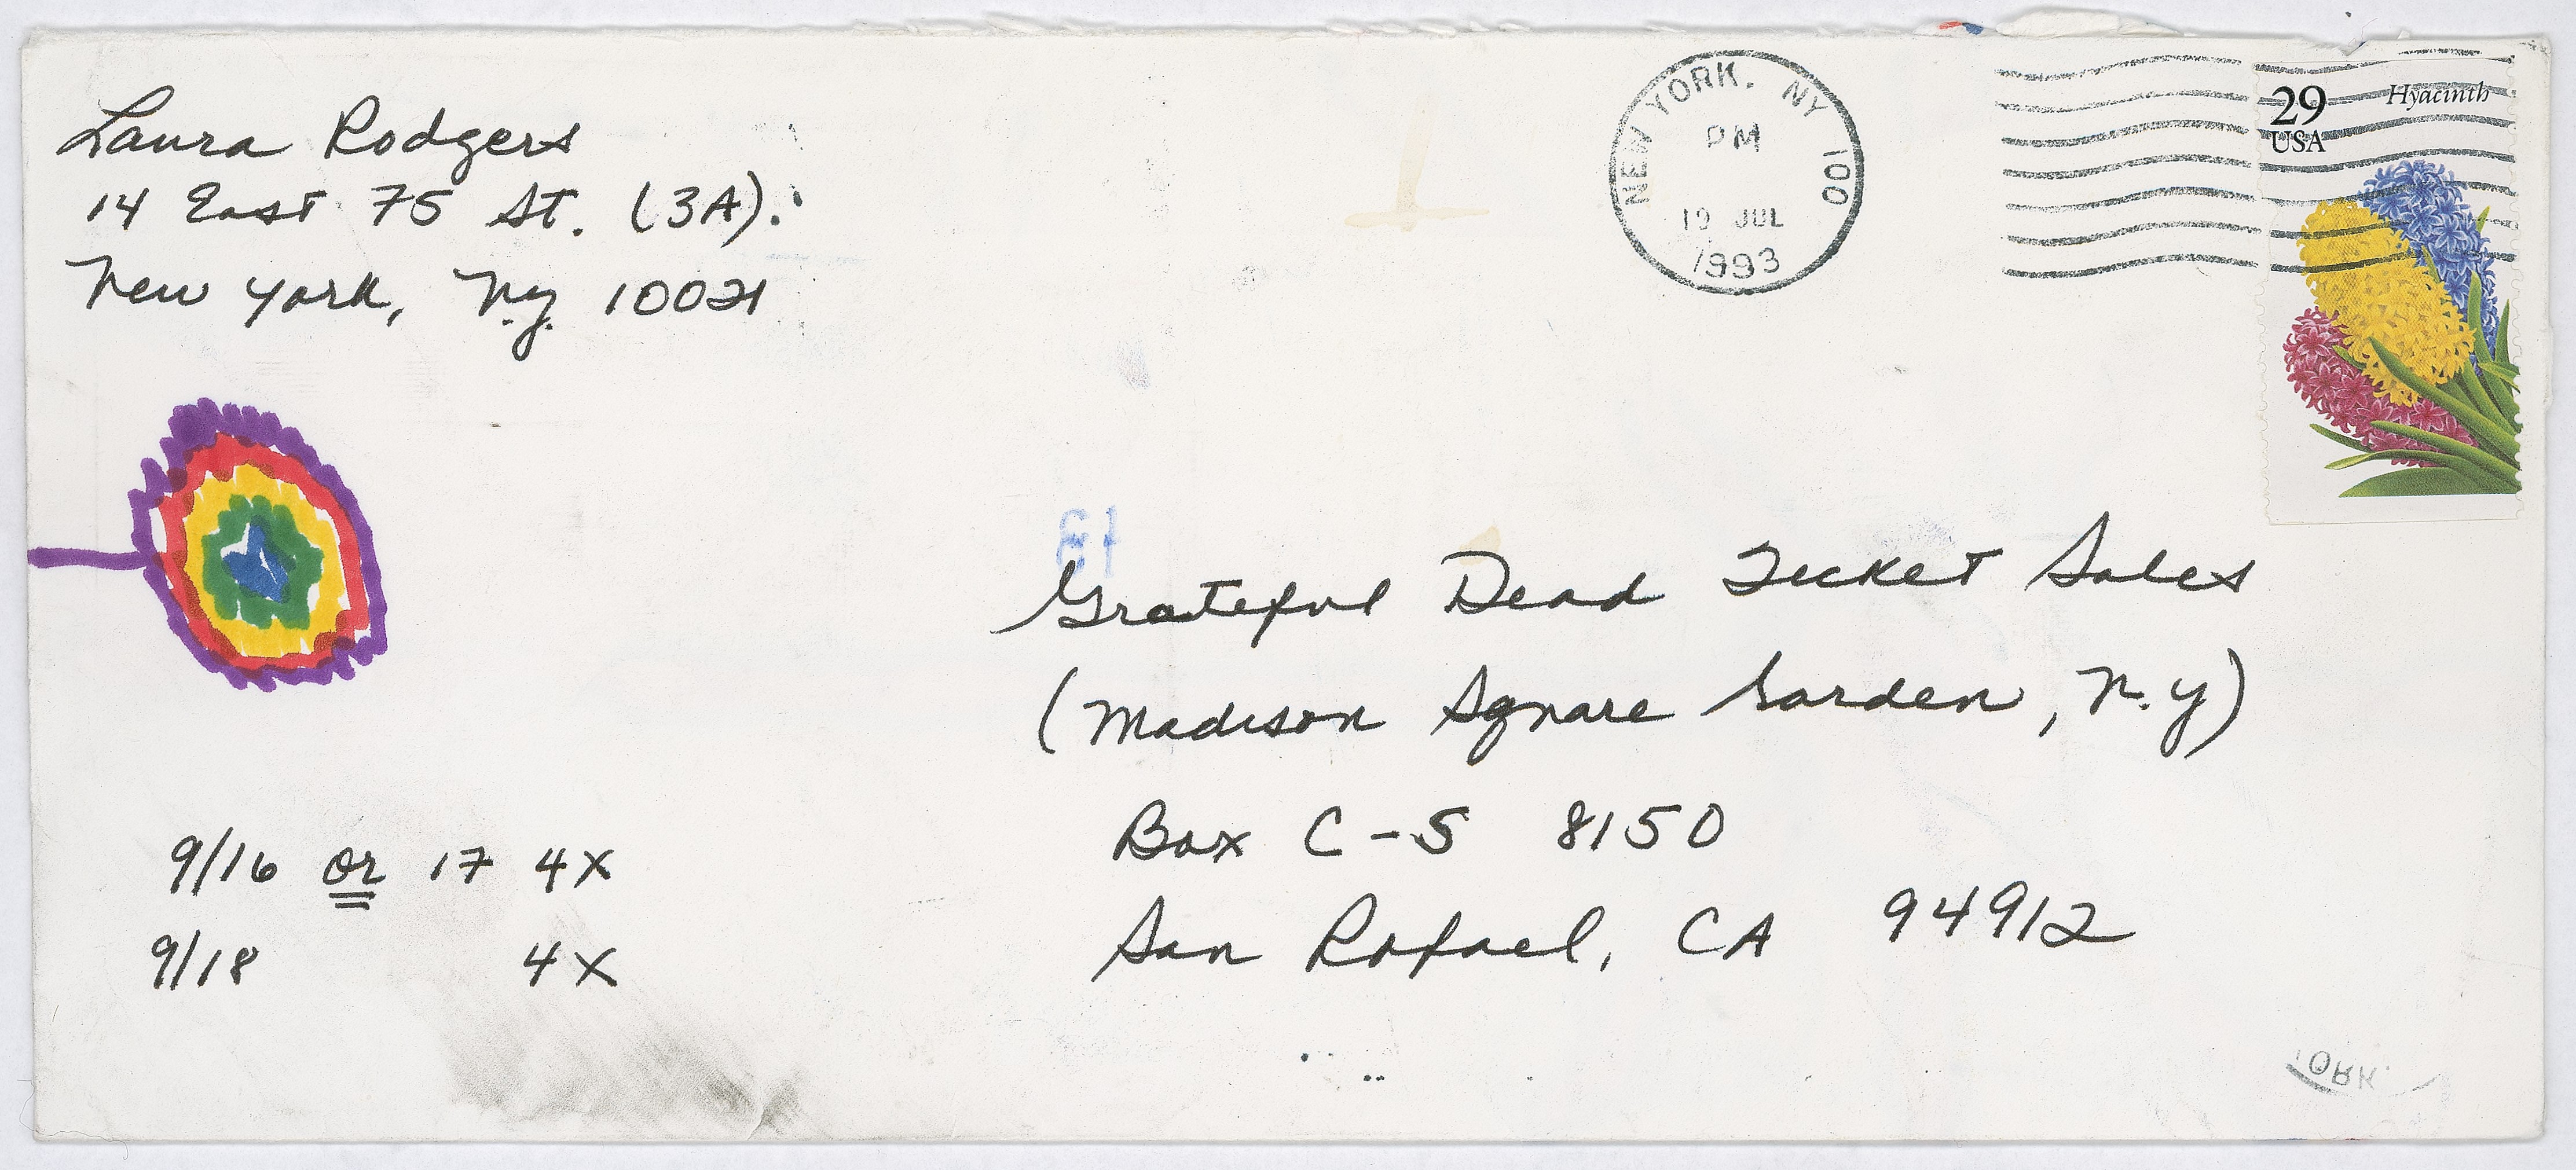 Laura Rodgers
14 East 75 St. (3A).
New York, N.Y. 10021
NEW YORK, NY 100
PM
19 JUL
1993
29 Hyacinth
USA
Grateful Dead Ticket Sales
(Madison Square Garden, N.Y)
Box C-S 8150
San Rafael, CA 94912
9/16 or 17 4X
9/18 4X
ORK.